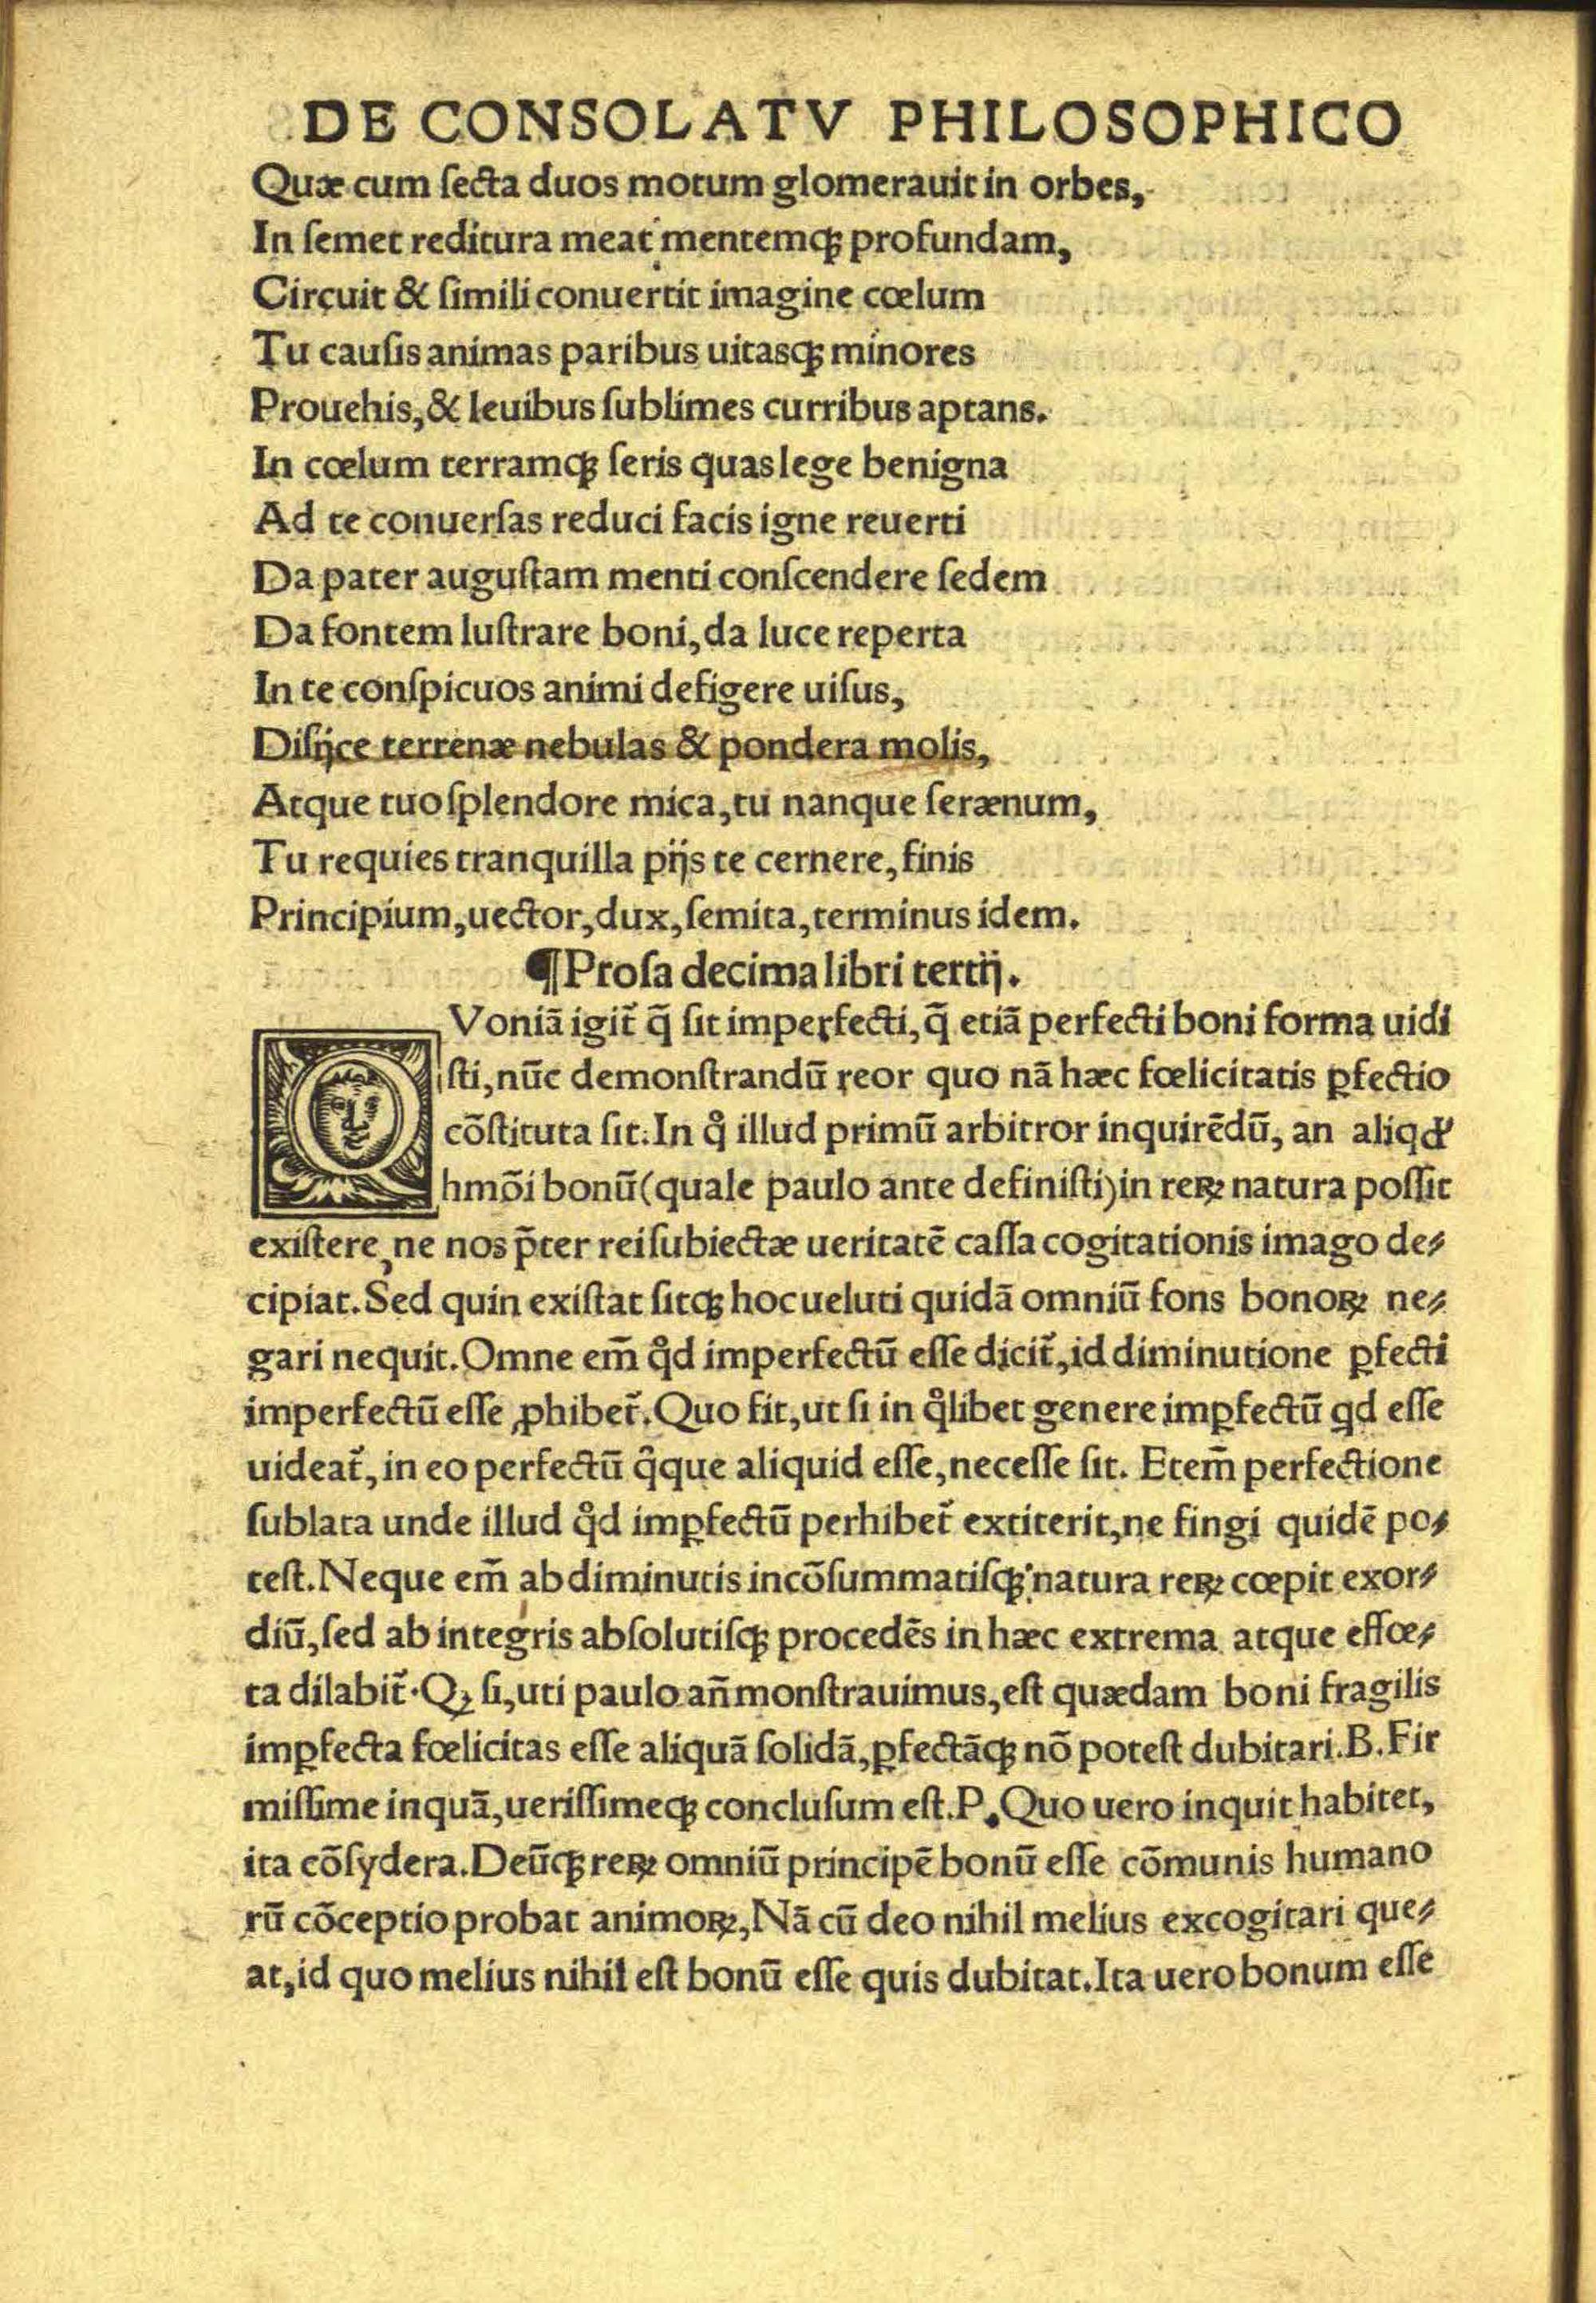 DE CONSOLATV PHILOSOPHICO
Quæ cum ſecta duos motum glomerauit in orbes,
In ſemet reditura meat mentemqꝫ profundam,
Circuit & ſimili conuertit imagine cœlum
Tu cauſis animas paribus uitasqꝫ minores
Prouehis, & leuibus ſublimes curribus aptans.
In cœlum terramqꝫ ſeris quas lege benigna
Ad te conuerſas reduci facis igne reuerti
Da pater auguſtam menti conſcendere ſedem
Da fontem luſtrare boni, da luce reperta
In te conſpicuos animi defigere uiſus,
Diſijce terrenæ nebulas & pondera molis,
Atque tuo ſplendore mica, tu nanque ſerænum,
Tu requies tranquilla pijs te cernere, finis
Principium, uector, dux, ſemita, terminus idem.
¶Proſa decima libri tertij.
QVoniā igit̃ q̄ ſit imperfecti, q̄ etiā perfecti boni forma uidi
ſti, nūc demonſtrandū reor quo nā hæc fœlicitatis ꝑfectio
cōſtituta ſit. In qͦ illud primū arbitror inquirēdū, an aliqđ
hmōi bonū (quale paulo ante definiſti) in reꝝ natura poſſit
exiſtere, ne nos p̄ter rei ſubiectæ ueritatē caſſa cogitationis imago de⸗
cipiat. Sed quin exiſtat ſitqꝫ hoc ueluti quidā omniū fons bonoꝝ ne⸗
gari nequit. Omne em̄ qͦd imperfectū eſſe dicit̃, id diminutione ꝑfecti
imperfectū eſſe ꝓhibet̃. Quo fit, ut ſi in qͦlibet genere imꝑfectū qd eſſe
uideat̃, in eo perfectū qͦque aliquid eſſe, neceſſe ſit. Etem̄ perfectione
ſublata unde illud qͦd imꝑfectū perhibet̃ extiterit, ne fingi quidē po⸗
teſt. Neque em̄ ab diminutis incōſummatiſqꝫ natura reꝝ cœpit exor⸗
diū, ſed ab integris abſolutiſqꝫ procedēs in hæc extrema atque effœ⸗
ta dilabit̃. Qꝫ ſi, uti paulo an̄ monſtrauimus, eſt quædam boni fragilis
imꝑfecta fœlicitas eſſe aliquā ſolidā, ꝑfectāqꝫ nō poteſt dubitari. B. Fir
miſſime inquā, ueriſſimeqꝫ concluſum eſt. P. Quo uero inquit habitet,
ita cōſydera. Deūqꝫ reꝝ omniū principē bonū eſſe cōmunis humano
rū cōceptio probat animoꝝ, Nā cū deo nihil melius excogitari que⸗
at, id quo melius nihil eſt bonū eſſe quis dubitat. Ita uero bonum eſſe